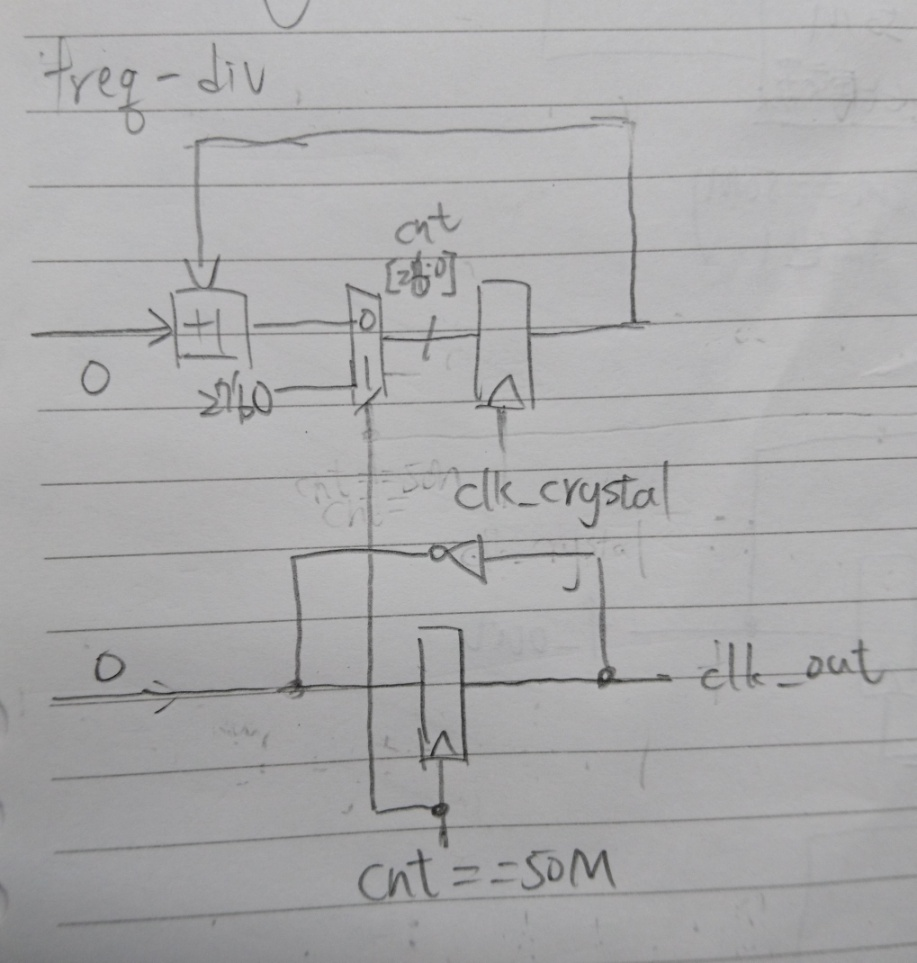 freq-div
cnt
+1
0
0
1
clk_crystal
0
clk_out
cnt==50M